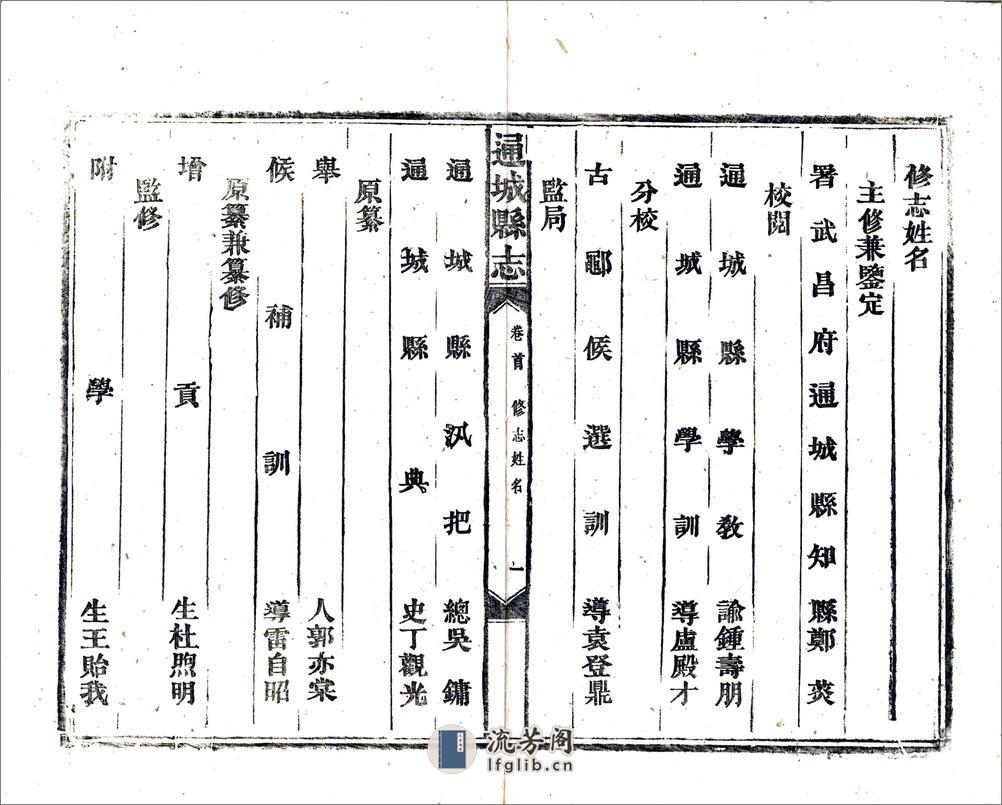 修志姓名
主修兼鑒定
署武昌府通城縣知縣鄭菼
校閱
通城縣學教諭鍾壽朋
通城縣學訓導盧殿才
分校
古郾候選訓導袁登鼎
監局
通城縣汛把總吳鏞
通城縣典史丁觀光
原纂
舉人郭亦棠
候補訓導雷自昭
原纂兼纂修
增貢生杜煦明
監修
附學生王貽我
通城縣志
卷首 修志姓名 一
流芳阁
lfglib.cn